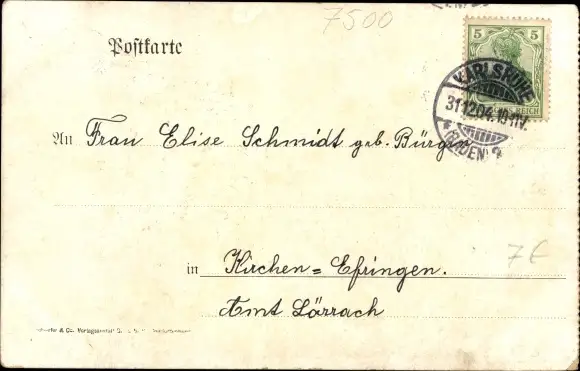 7500
5 5
Postkarte
KARLSRUHE
31.12.04.10-11V.
(BADEN)
REICH
An Frau Elise Schmidt geb. Bürgin
7 €
in Kirchen=Efringen.
Amt Lörrach
& Co.